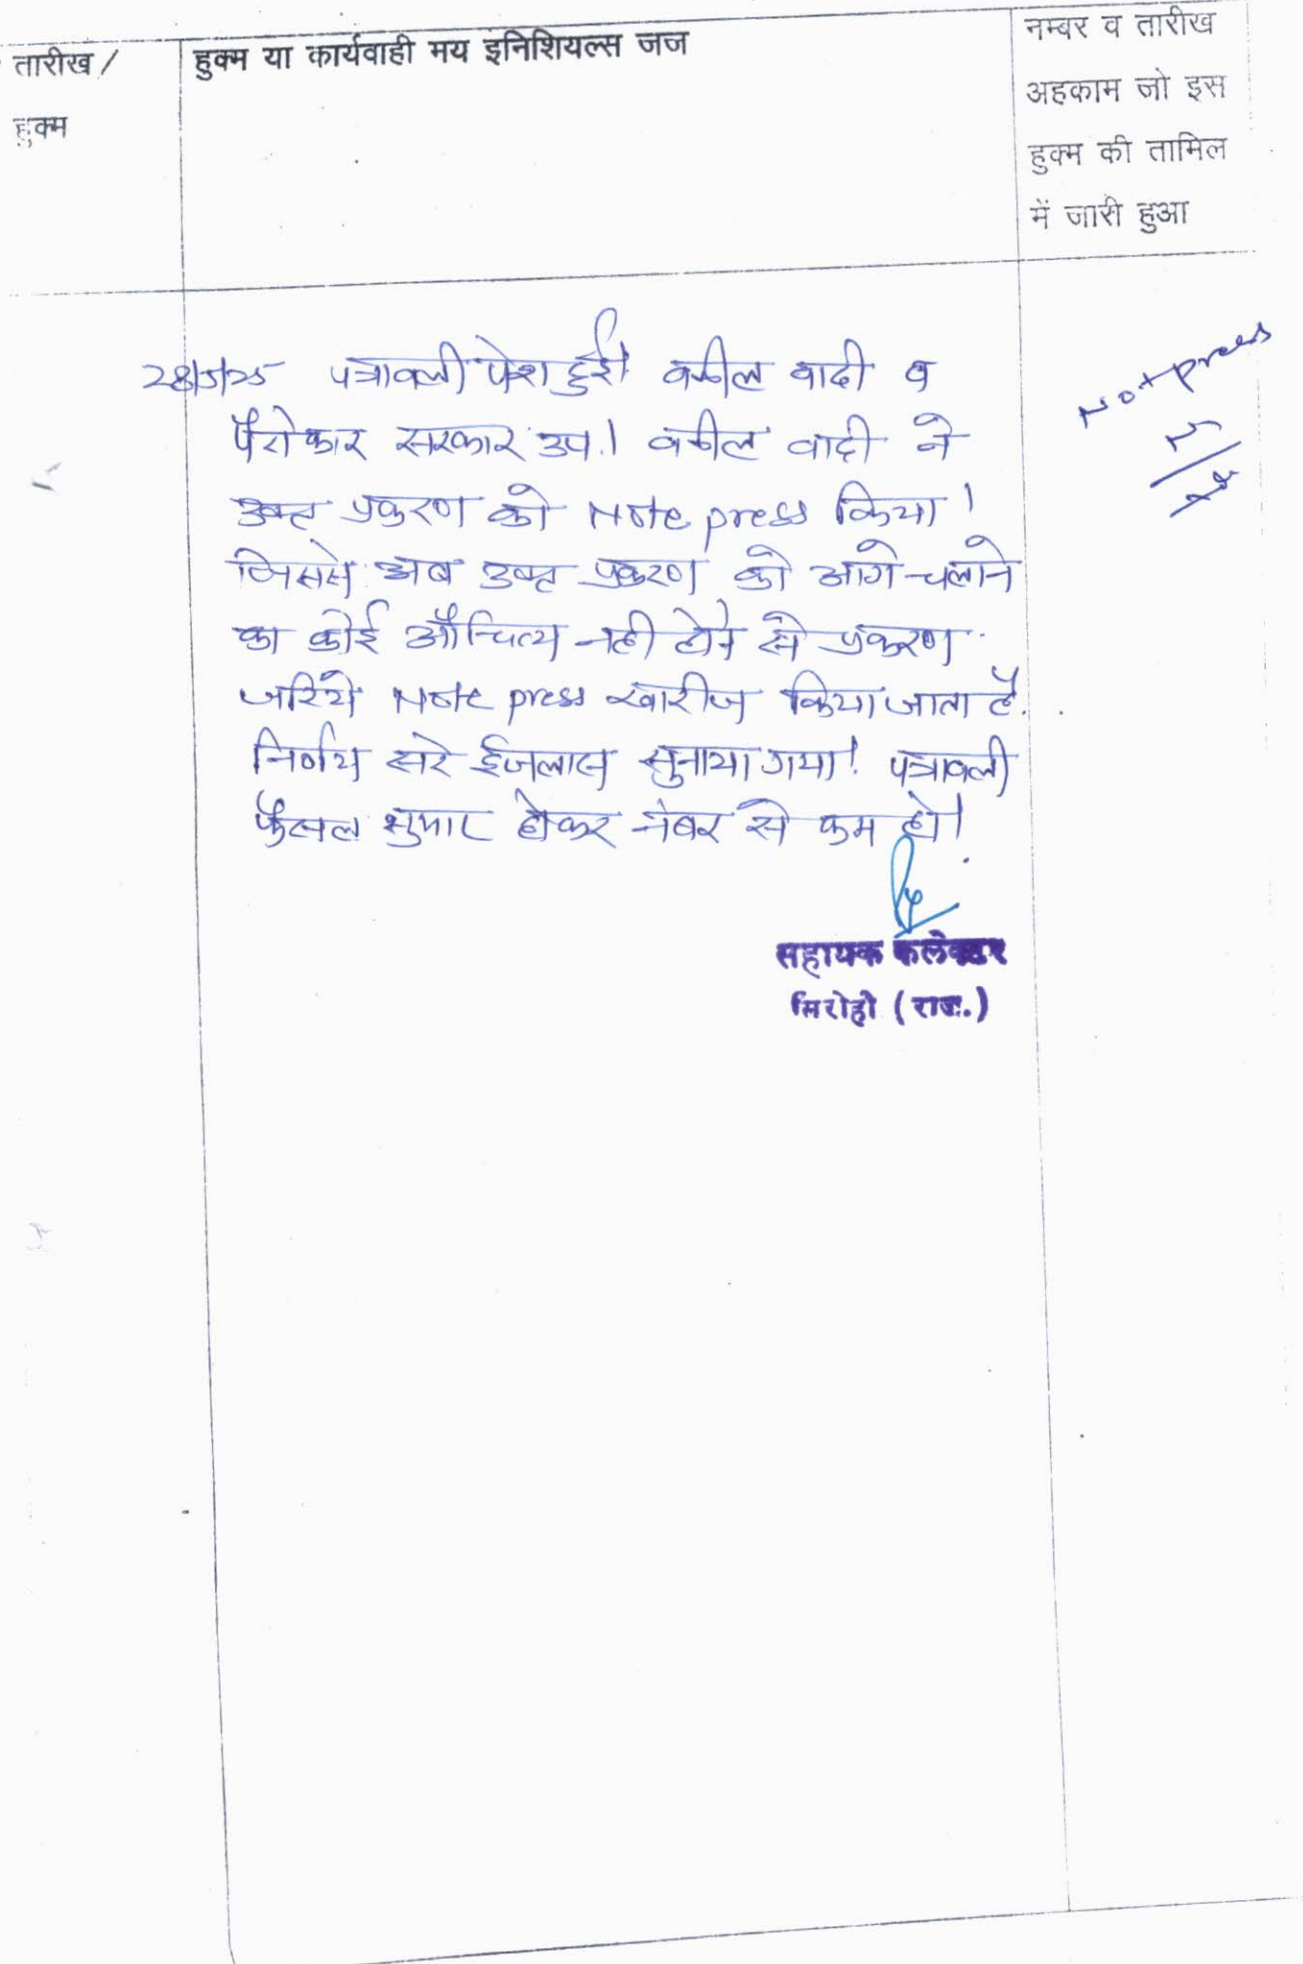 तारीख / हुक्म
हुक्म या कार्यवाही मय इनिशियल्स जज
नम्बर व तारीख
अहकाम जो इस
हुक्म की तामिल
में जारी हुआ
28/5/25 पत्रावली पेश हुई। वकील वादी व
पैरोकार सरकार उप.। वकील वादी ने
उक्त प्रकरण को Note press किया।
जिससे अब उक्त प्रकरण को आगे चलाने
का कोई औचित्य नही होने से प्रकरण
जरिये Note press खारीज किया जाता है.
निर्णय सरे ईजलास सुनाया गया! पत्रावली
फैसल शुमार होकर नंबर से कम हो!
Not press
सहायक कलेक्टर
सिरोही (राज.)